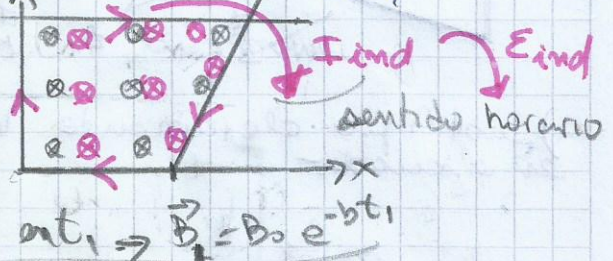 I ind ε ind
sentido horario
x
en t₁ ⇒ B⃗₁ = B₀ e^-bt₁